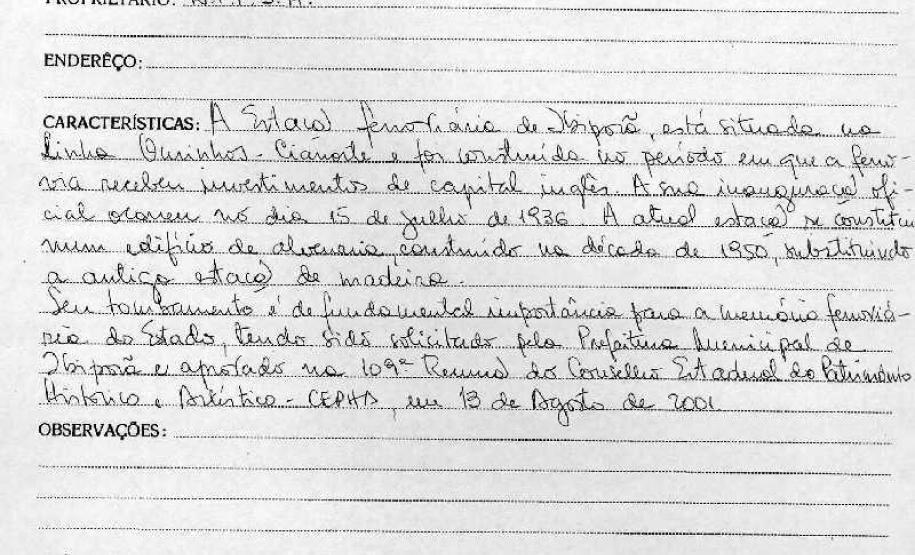 PROPRIETÁRIO: R.F.F.S.A.
ENDERÊÇO:
CARACTERÍSTICAS: A Estação ferroviária de Ibiporã, está situada na
linha Ourinhos - Cianorte e foi construída no período em que a ferro-
via recebeu investimentos de capital inglês. A sua inauguração ofi-
cial ocorreu no dia 15 de julho de 1936. A atual estação se constitui
num edifício de alvenaria, construído na década de 1950, substituindo
a antiga estação de madeira.
Seu tombamento é de fundamental importância para a memória ferroviá-
ria do Estado, tendo sido solicitado pela Prefeitura Municipal de
Ibiporã e aprovado na 109ª Reunião do Conselho Estadual do Patrimônio
Histórico e Artístico - CEPHA, em 13 de Agosto de 2001.
OBSERVAÇÕES: